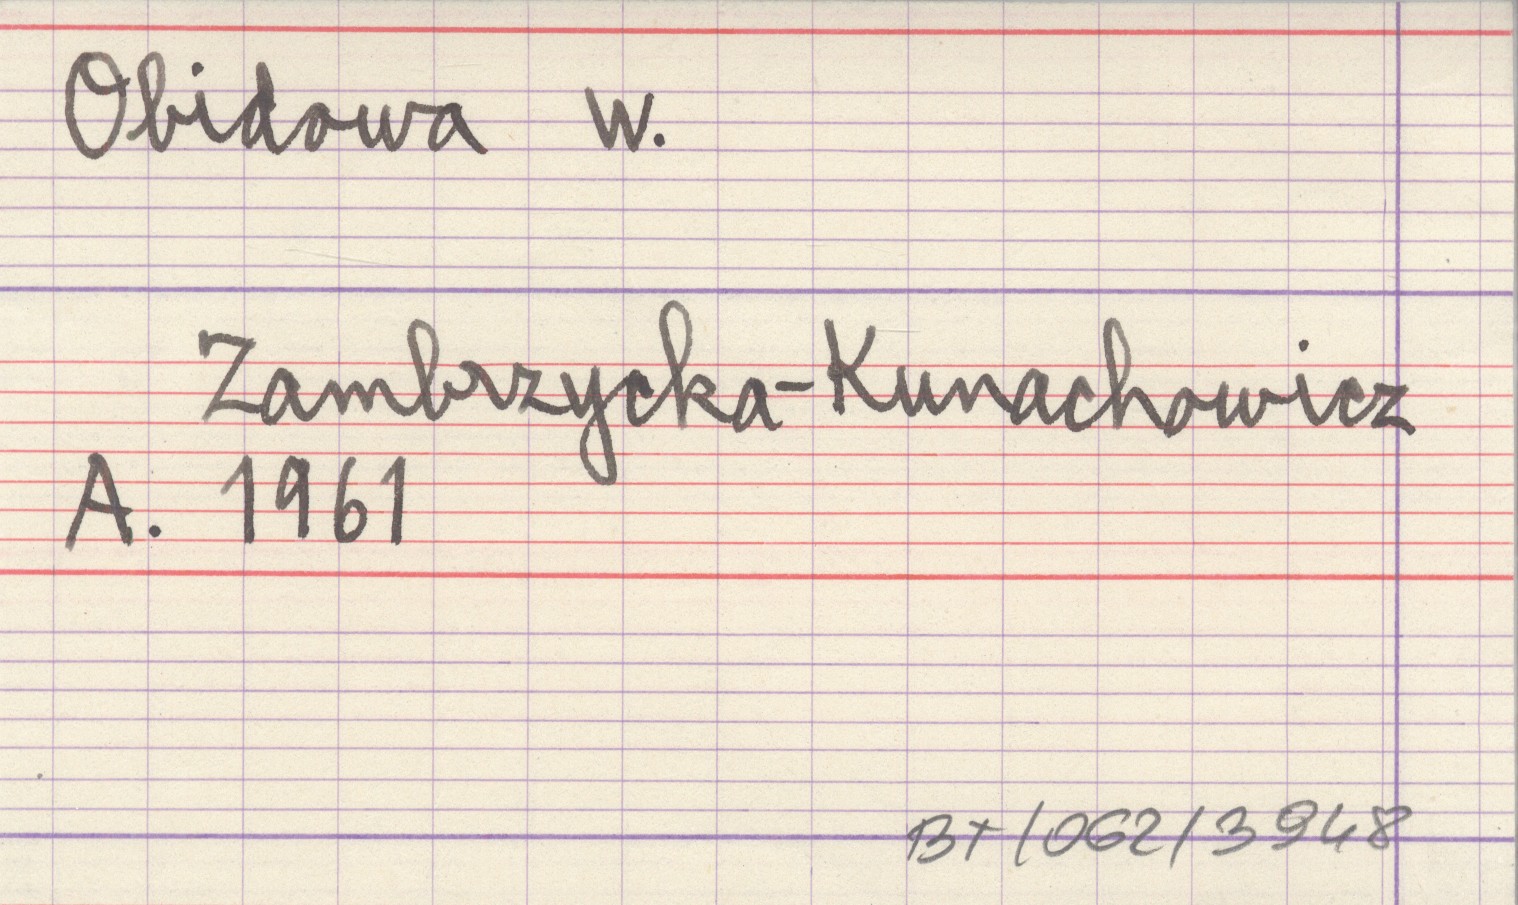 Obidowa w.
Zambrzycka-Kunachowicz
A. 1961
BT/062/3948